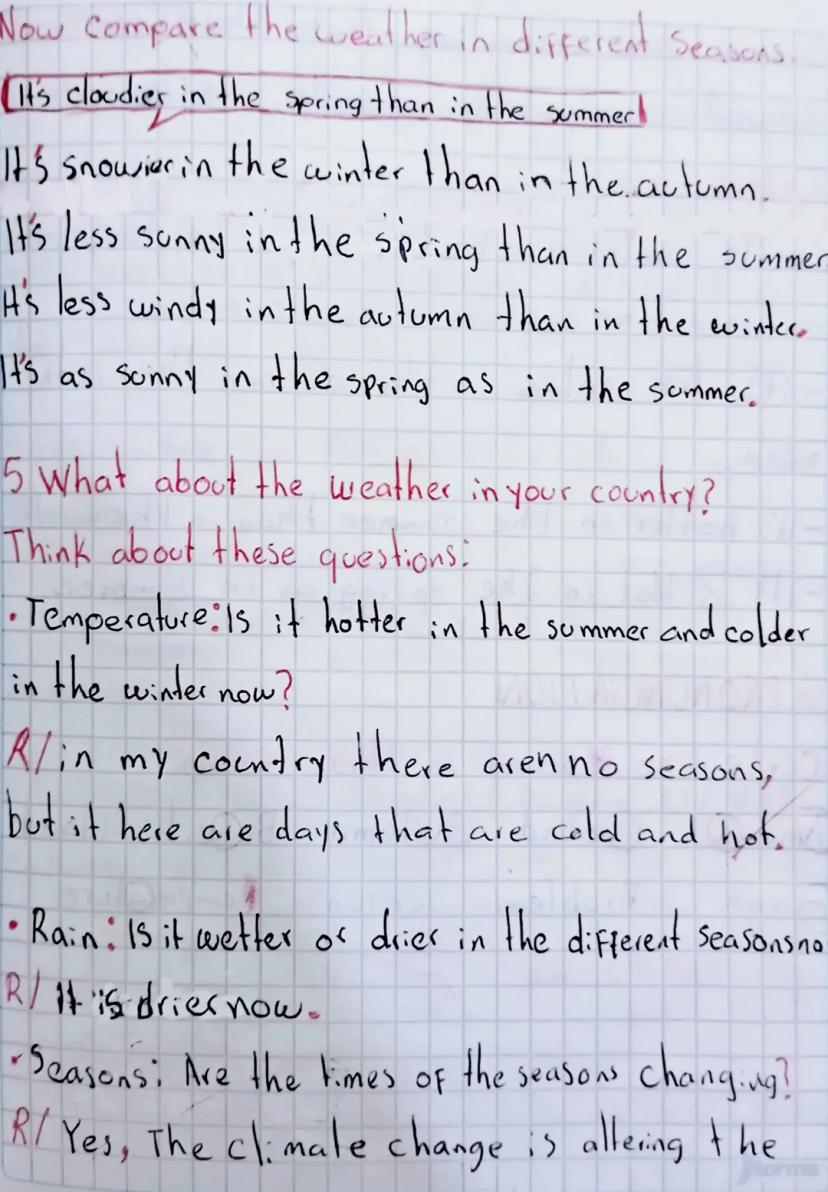 Now compare the weather in different seasons.
It's cloudier in the spring than in the summer
It's snowier in the winter than in the autumn.
It's less sunny in the spring than in the summer
It's less windy in the autumn than in the winter.
It's as sunny in the spring as in the summer.
5 What about the weather in your country?
Think about these questions:
• Temperature: Is it hotter in the summer and colder
in the winter now?
R/ in my country there aren no seasons,
but it here are days that are cold and hot.
• Rain: Is it wetter or drier in the different seasons no
R/ It is drier now.
• Seasons: Are the times of the seasons changing?
R/ Yes, The climate change is altering the
Norma